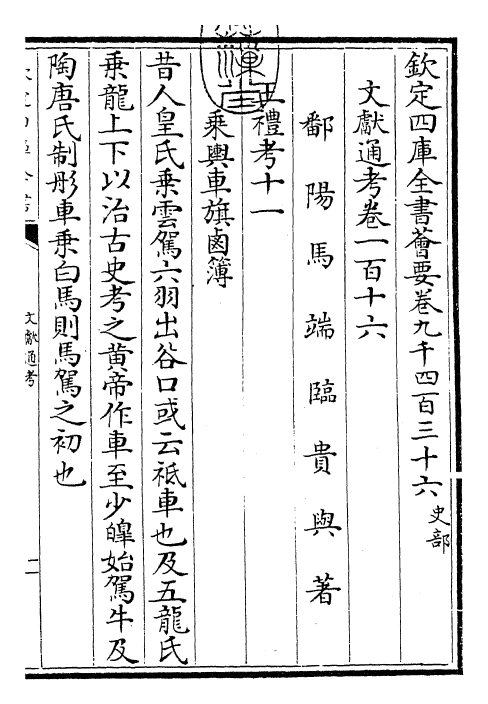 欽定四庫全書薈要卷九千四百三十六 史部
文獻通考卷一百十六
鄱陽馬端臨貴與著
王禮考十一
乘輿車旗鹵簿
昔人皇氏乘雲駕六羽出谷口或云祗車也及五龍氏
乘龍上下以治古史考之黄帝作車至少皥始駕牛及
陶唐氏制彤車乗白馬則馬駕之初也
文獻通考